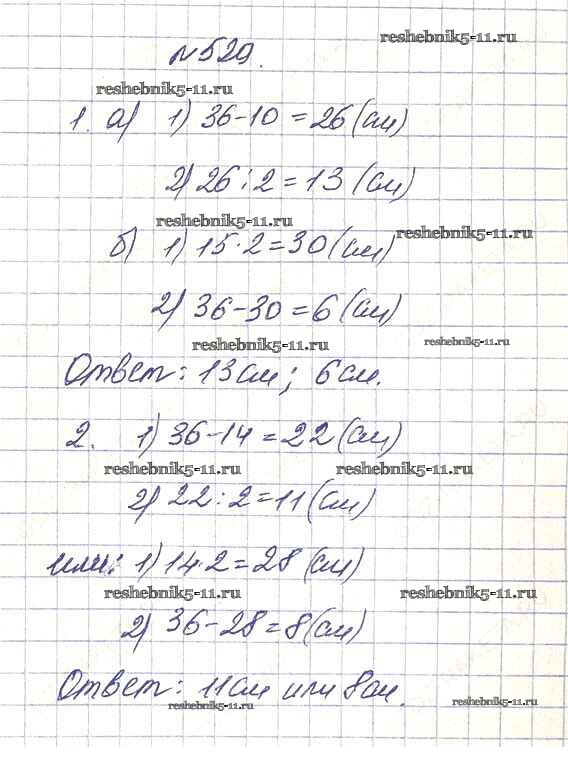 reshebnik5-11.ru
№529.
reshebnik5-11.ru
1. а) 1) 36-10=26(см)
2) 26:2=13(см)
reshebnik5-11.ru
reshebnik5-11.ru
б) 1) 15·2=30(см)
2) 36-30=6(см)
reshebnik5-11.ru
reshebnik5-11.ru
Ответ: 13см; 6см.
2. 1) 36-14=22(см)
reshebnik5-11.ru
reshebnik5-11.ru
2) 22:2=11(см)
или: 1) 14·2=28(см)
reshebnik5-11.ru
reshebnik5-11.ru
2) 36-28=8(см)
Ответ: 11см или 8см.
reshebnik5-11.ru
reshebnik5-11.ru